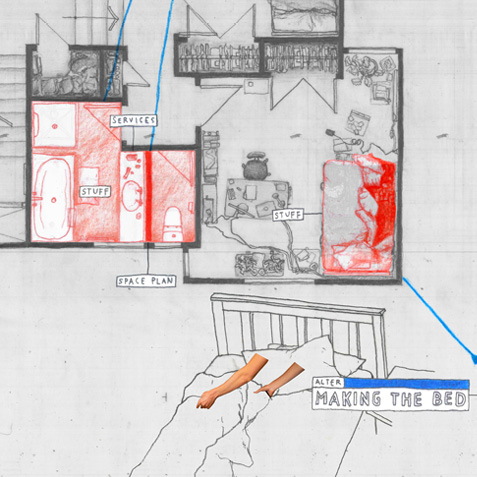 SERVICES
STUFF
STUFF
SPACE PLAN
ALTER
MAKING THE BED